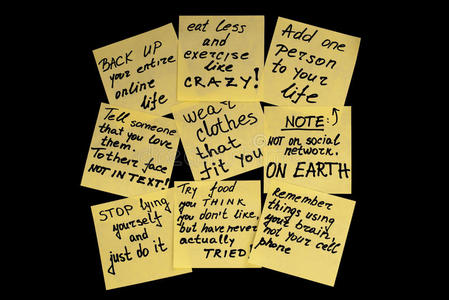 BACK UP
your entire
online
life
eat less
and
exercise
like
CRAZY!
Add one
person
to your
life
Tell someone
that you love
them.
To their face
NOT IN TEXT!
wear
clothes
that
fit you
NOTE:
NOT on social
network.
ON EARTH
STOP lying
yourself
and
just do it
Try food
you THINK
you don't like,
but have never
actually
TRIED!
Remember
things using
your brain,
not your cell
phone